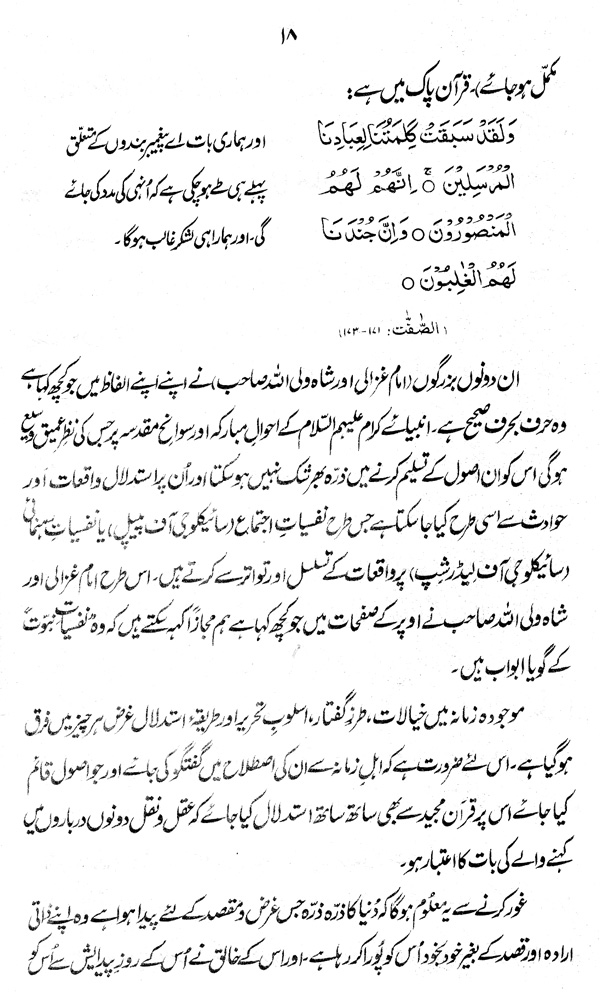 ۱۸
مکمّل ہو جائے)۔ قرآن پاک میں ہے:
وَلَقَدْ سَبَقَتْ كَلِمَتُنَا لِعِبَادِنَا
الْمُرْسَلِيْنَ ○ اِنَّهُمْ لَهُمُ
الْمَنْصُوْرُوْنَ ○ وَاِنَّ جُنْدَنَا
لَهُمُ الْغٰلِبُوْنَ ○
(الصّٰفّٰت: ۱۷۱-۱۷۳)
اور ہماری بات اے پیغمبر بندوں کے متعلق
پہلے ہی طے ہو چکی ہے کہ اُنہی کی مدد کی جائے
گی۔ اور ہمارا ہی لشکر غالب ہوگا۔
ان دونوں بزرگوں (امام غزالی اور شاہ ولی اللہ صاحب) نے اپنے اپنے الفاظ میں جو کچھ کہا ہے
وہ حرف بحرف صحیح ہے۔ انبیائے کرام علیہم السّلام کے احوالِ مبارکہ اور سوانح مقدسہ پر جس کی نظر عمیق و وسیع
ہوگی اس کو ان اصول کے تسلیم کرنے میں ذرّہ بھر شک نہیں ہو سکتا اور اُن پر استدلال واقعات اور
حوادث سے اسی طرح کیا جا سکتا ہے جس طرح نفسیاتِ اجتماع (سائیکلوجی آف پیپل) یا نفسیاتِ رہنمائی
(سائیکلوجی آف لیڈرشپ) پر واقعات کے تسلسل اور تواتر سے کرتے ہیں۔ اس طرح امام غزالی اور
شاہ ولی اللہ صاحب نے اوپر کے صفحات میں جو کچھ کہا ہے ہم مجازاً کہہ سکتے ہیں کہ وہ "نفسیاتِ نبوّت"
کے گویا ابواب ہیں۔
موجودہ زمانہ میں خیالات، طرزِ گفتار، اسلوبِ تحریر اور طریقۂ استدلال غرض ہر چیز میں فرق
ہو گیا ہے۔ اس لئے ضرورت ہے کہ اہلِ زمانہ سے ان کی اصطلاح میں گفتگو کی جائے اور جو اصول قائم
کیا جائے اس پر قرآن مجید سے بھی ساتھ ساتھ استدلال کیا جائے کہ عقل و نقل دونوں درباروں میں
کہنے والے کی بات کا اعتبار ہو۔
غور کرنے سے یہ معلوم ہوگا کہ دُنیا کا ذرّہ ذرّہ جس غرض و مقصد کے لئے پیدا ہوا ہے وہ اپنے ذاتی
ارادہ اور قصد کے بغیر خود بخود اُس کو پُورا کر رہا ہے۔ اور اس کے خالق نے اُس کے روزِ پیدایش سے اُس کو